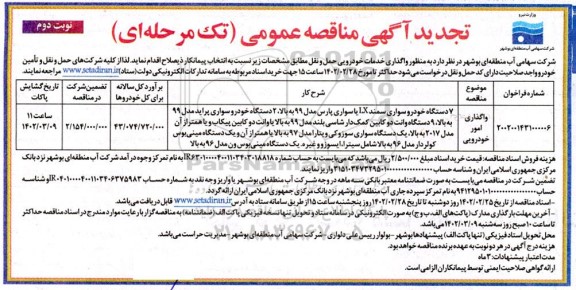 وزارت نیرو
شرکت سهامی آب منطقه‌ای بوشهر
تجدید آگهی مناقصه عمومی (تک مرحله‌ای)
نوبت دوم
شرکت سهامی آب منطقه‌ای بوشهر در نظر دارد به منظور واگذاری خدمات خودرویی حمل و نقل مطابق مشخصات زیر نسبت به انتخاب پیمانکار ذیصلاح اقدام نماید. لذا از کلیه شرکت‌های حمل و نقل و تأمین
خودرو واجد صلاحیت دارای کد حمل و نقل درخواست می‌شود حداکثر تا مورخ ۱۴۰۲/۰۲/۲۸ ساعت ۱۵ جهت خرید اسناد مربوطه به سامانه تدارکات الکترونیکی دولت (ستاد) www.setadiran.ir مراجعه نمایند.
شماره فراخوان
موضوع مناقصه
شرح کار
برآورد کل سالانه برای کل خودروها
تضمین شرکت در مناقصه
تاریخ گشایش پاکات
۲۰۰۲۰۰۱۴۳۱۰۰۰۰۰۶
واگذاری امور خودرویی
۷ دستگاه خودرو سواری سمند LX یا سواری پارس مدل ۹۹ به بالا، ۲ دستگاه خودرو سواری پراید مدل ۹۹
به بالا، ۹ دستگاه وانت دو کابین کمک‌دار شاسی بلند مدل ۹۹ به بالا یا وانت دو کابین پیکاپ و یا همتراز آن
مدل ۲۰۱۷ به بالا، یک دستگاه سواری سوزوکی ویتارا مدل ۹۷ به بالا یا همتراز آن و یک دستگاه مینی‌بوس
کولردار مدل ۹۶ به بالا شامل سیترا، ایسوزو و غیره، یک دستگاه مینی‌بوس ون مدل ۹۶ به بالا
۴۳/۰۷۴/۷۲۰/۰۰۰
۲/۱۵۴/۰۰۰/۰۰۰
ساعت ۱۱
۱۴۰۲/۰۳/۰۹
هزینه فروش اسناد مناقصه: قیمت خرید اسناد مبلغ ۲/۵۰۰/۰۰۰ ریال می‌باشد که می‌بایست به حساب شماره
به نام تمرکز وجوه درآمد شرکت آب منطقه‌ای بوشهر نزد بانک
مرکزی جمهوری اسلامی ایران و شناسه حساب
واریز نمایند.
تضمین شرکت در مناقصه می‌بایست به صورت ضمانتنامه معتبر بانکی سه ماهه در وجه شرکت آب منطقه‌ای بوشهر یا واریز وجه نقد به شماره حساب
و شناسه
به نام تمرکز سپرده جاری آب منطقه‌ای بوشهر نزد بانک مرکزی جمهوری اسلامی ایران ارائه گردد.
- اسناد مناقصه از تاریخ ۱۴۰۲/۰۲/۲۵ روز دوشنبه تا تاریخ ۱۴۰۲/۰۲/۲۸ روز پنجشنبه ساعت ۱۵ از طریق سامانه ستاد به آدرس www.setadiran.ir قابل دریافت می‌باشد.
- آخرین مهلت بارگذاری مدارک (پاکت‌های الف، ب و ج) به صورت الکترونیکی در سامانه ستاد و تحویل تنها نسخه فیزیکی پاکت الف (ضمانتنامه) به مناقصه گزار با رعایت موارد مندرج در اسناد مناقصه حداکثر
تا ساعت ۱۰ صبح روز سه‌شنبه ۱۴۰۲/۰۳/۰۹ می‌باشد.
محل تحویل اسناد فیزیکی (تنها پاکت الف) پیشنهادها بوشهر - بولوار رییس علی دلواری - شرکت سهامی آب منطقه‌ای بوشهر - مدیریت حراست می‌باشد.
هزینه درج آگهی در هر دو نوبت به عهده برنده مناقصه خواهد بود.
مدت اعتبار پیشنهادات: ۳ ماه
ارائه گواهی صلاحیت ایمنی توسط پیمانکاران الزامی است.